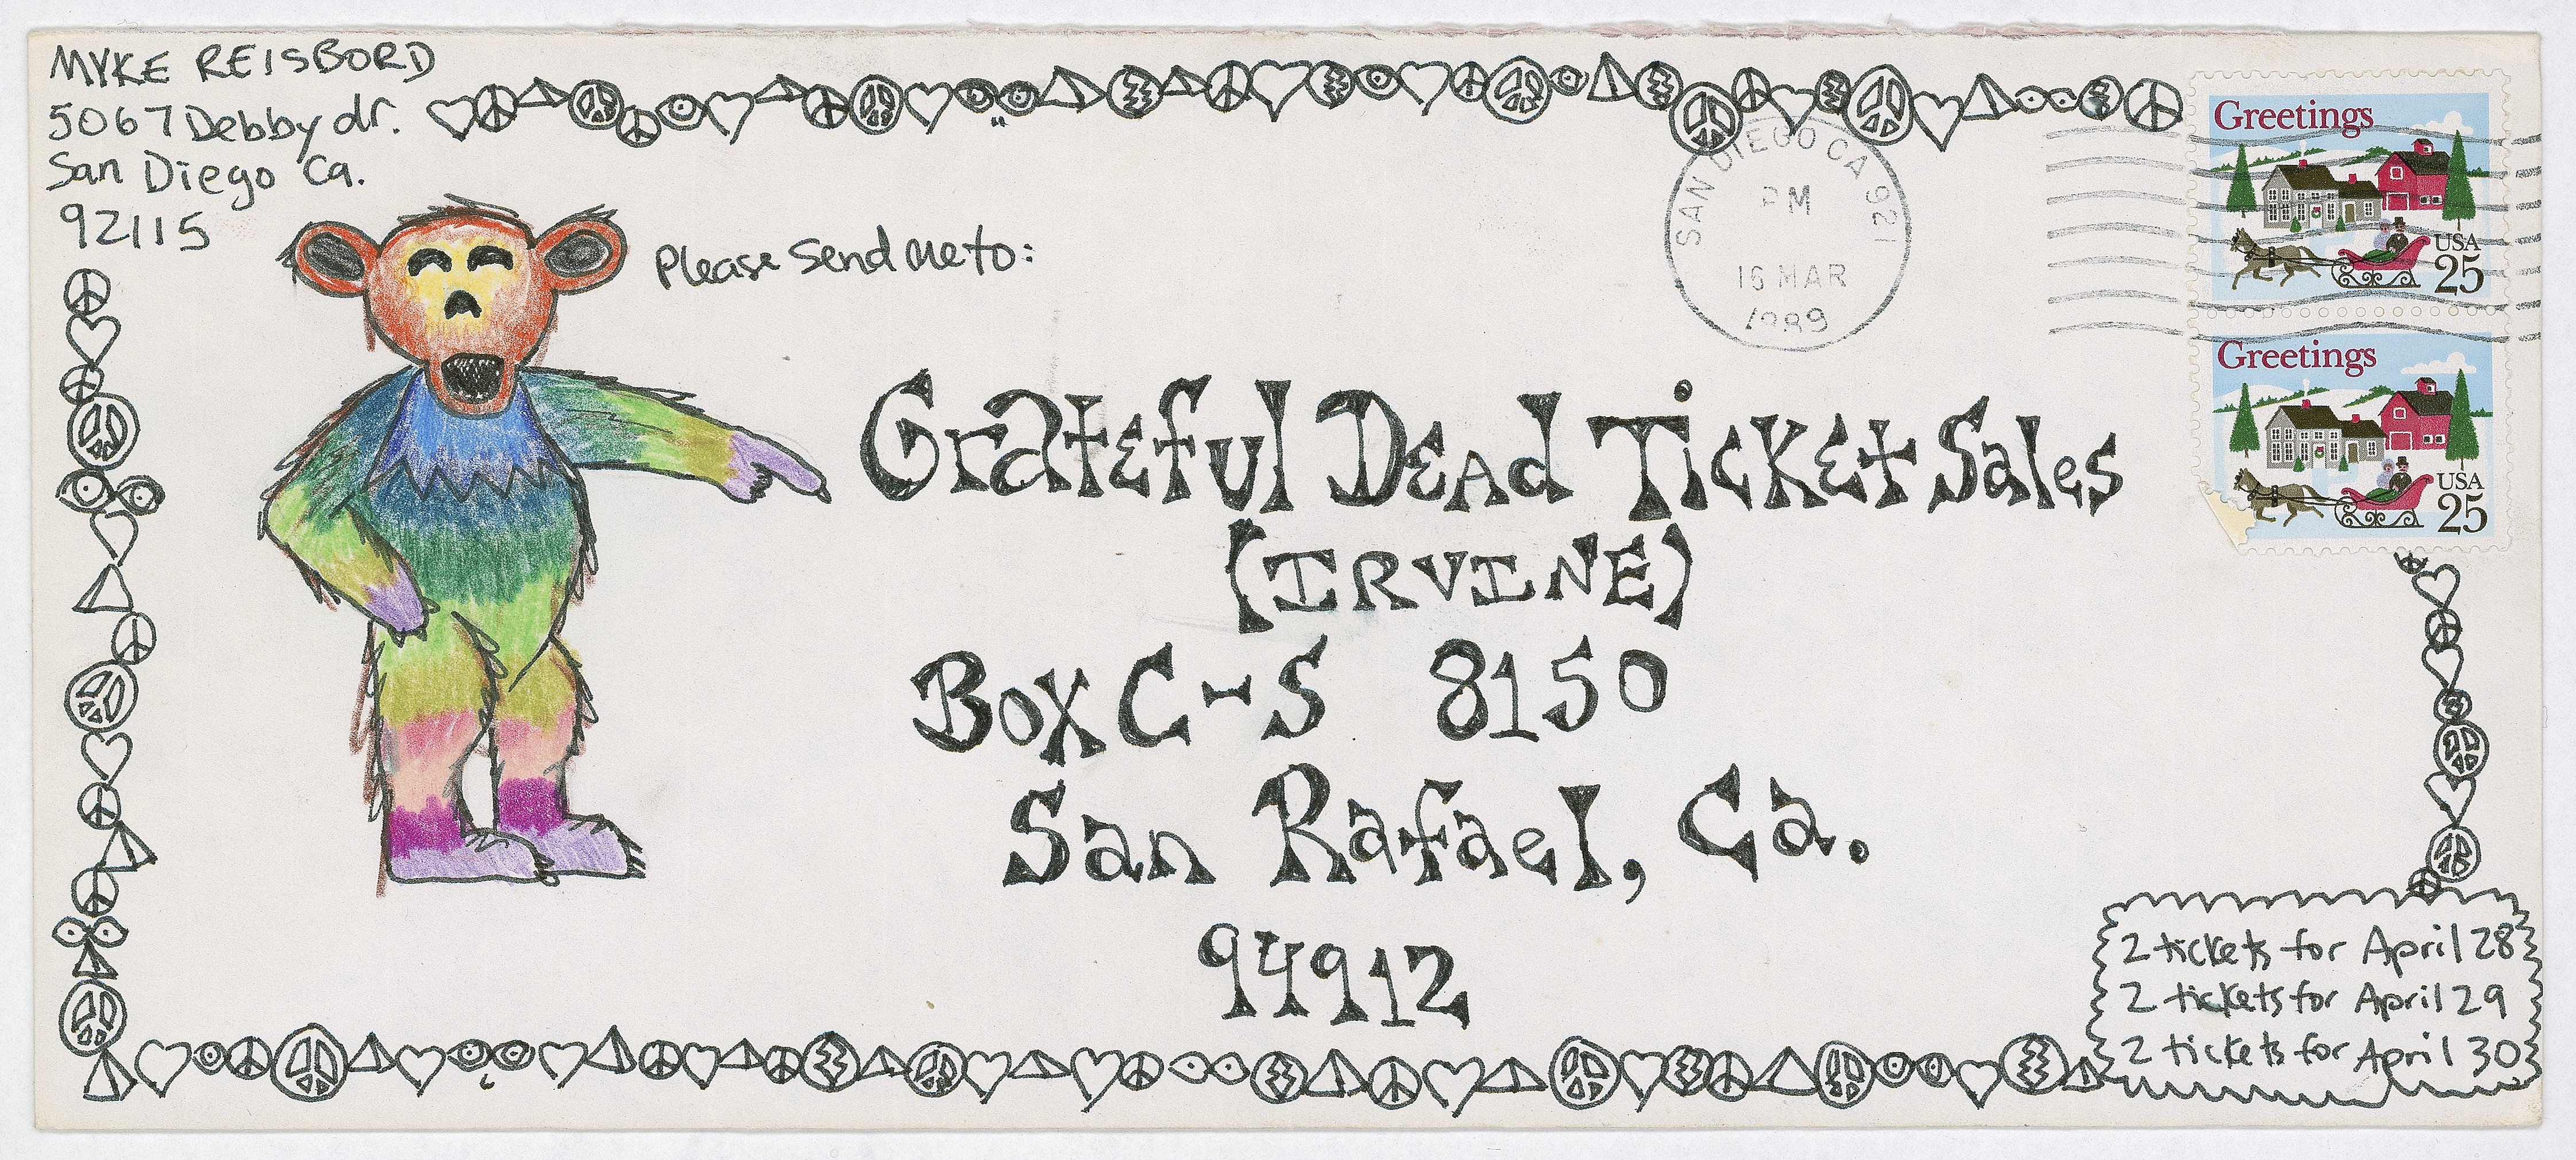 MYKE REISBORD
5067 Debby dr.
San Diego Ca.
92115
Please Send Me to:
SAN DIEGO CA 921
PM
16 MAR
1989
Greetings
USA
25
Greetings
USA
25
Grateful Dead Ticket Sales
(IRVINE)
Box C-S 8150
San Rafael, Ca.
94912
2 tickets for April 28
2 tickets for April 29
2 tickets for April 30